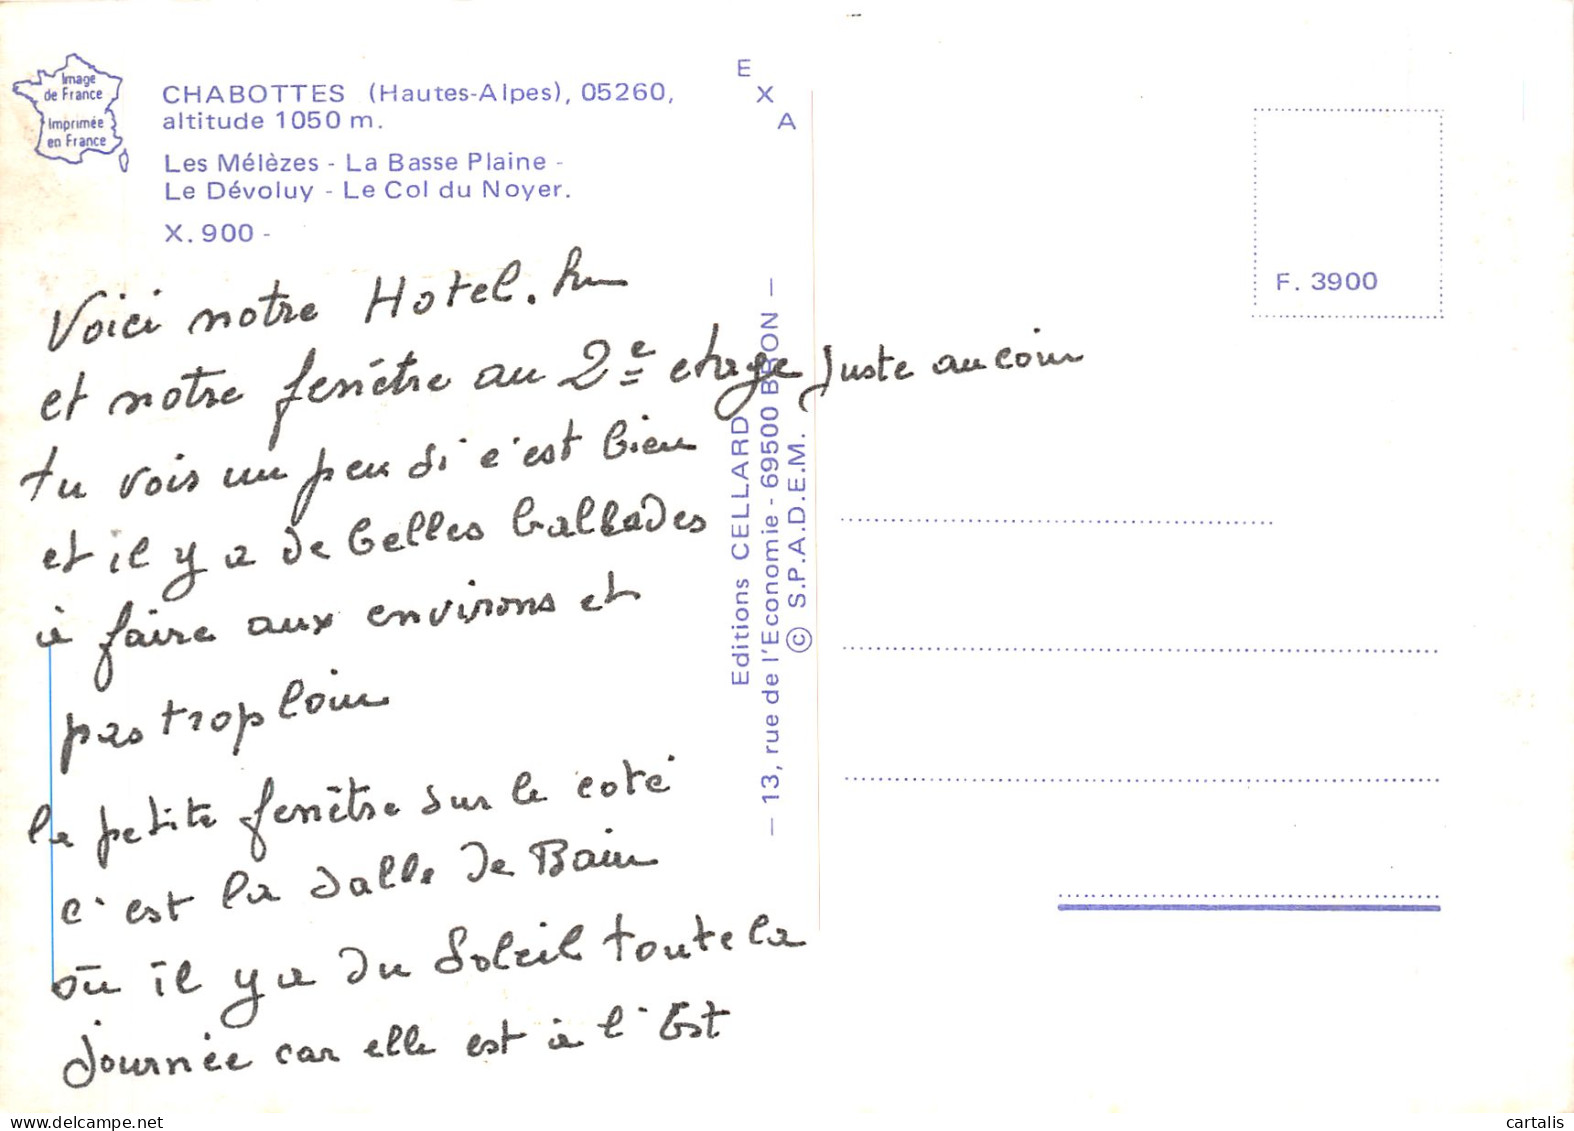 Image
de France
Imprimée
en France
CHABOTTES (Hautes-Alpes), 05260,
altitude 1050 m.
Les Mélèzes - La Basse Plaine -
Le Dévoluy - Le Col du Noyer.
X. 900 -
E
X
A
F. 3900
Voici notre Hotel.
et notre fenêtre au 2e etage juste au coin
tu vois un peu si c'est bien
et il y a de belles ballades
à faire aux environs et
pas trop loin
la petite fenêtre sur le coté
c'est la salle de Bain
où il y a du soleil toute la
journée car elle est à l'Est
Editions CELLARD
— 13, rue de l'Economie - 69500 BRON —
© S.P.A.D.E.M.
cartalis